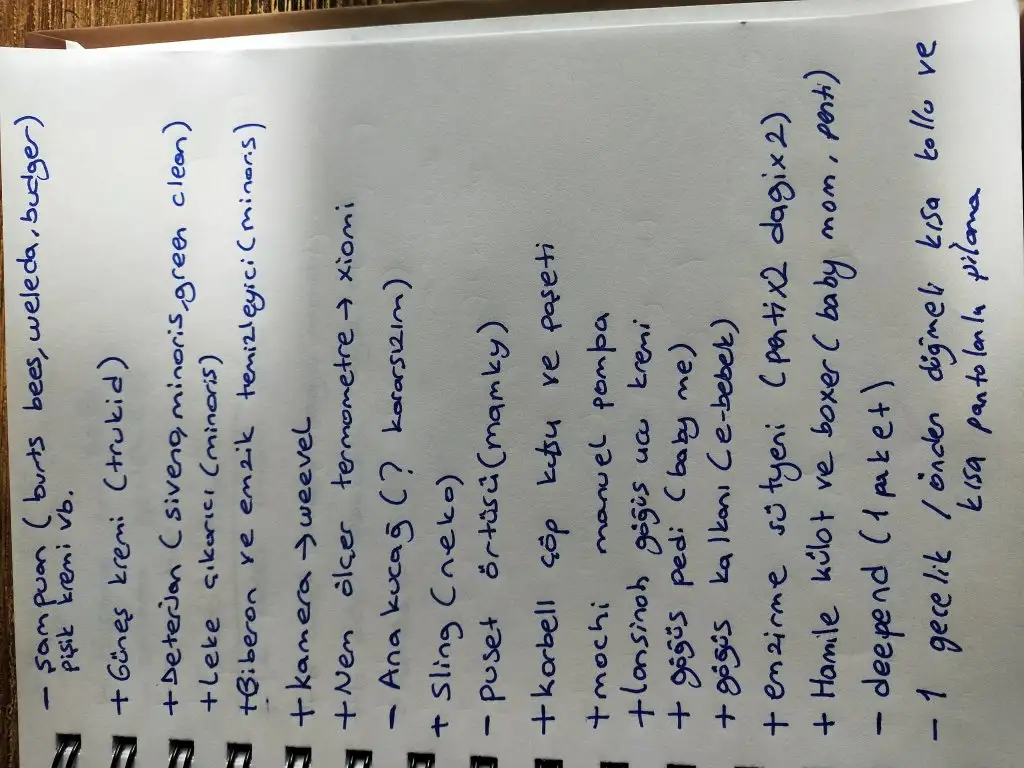 - şampuan (burts bees, weleda, budger)
pişik kremi vb.
+ Güneş kremi (trukid)
+ Deterjan (siveno, minoris, green clean)
+ Leke çıkarıcı (minoris)
+ Biberon ve emzik temizleyici (minoris)
+ kamera → weevel
+ Nem ölçer termometre → xiomi
- Ana kucağ (? kararsızım)
+ Sling (neko)
- puset örtüsü (mamky)
+ korbell çöp kutusu ve poşeti
+ mochi manuel pompa
+ lansinoh göğüs ucu kremi
+ göğüs pedi (baby me)
+ göğüs kalkanı (e-bebek)
+ emzirme sütyeni (penti x2 dagi x 2)
+ Hamile külot ve boxer (baby mom, penti)
- deepend (1 paket)
- 1 gecelik / önden düğmeli kısa kollu ve
kısa pantolonlu pijama